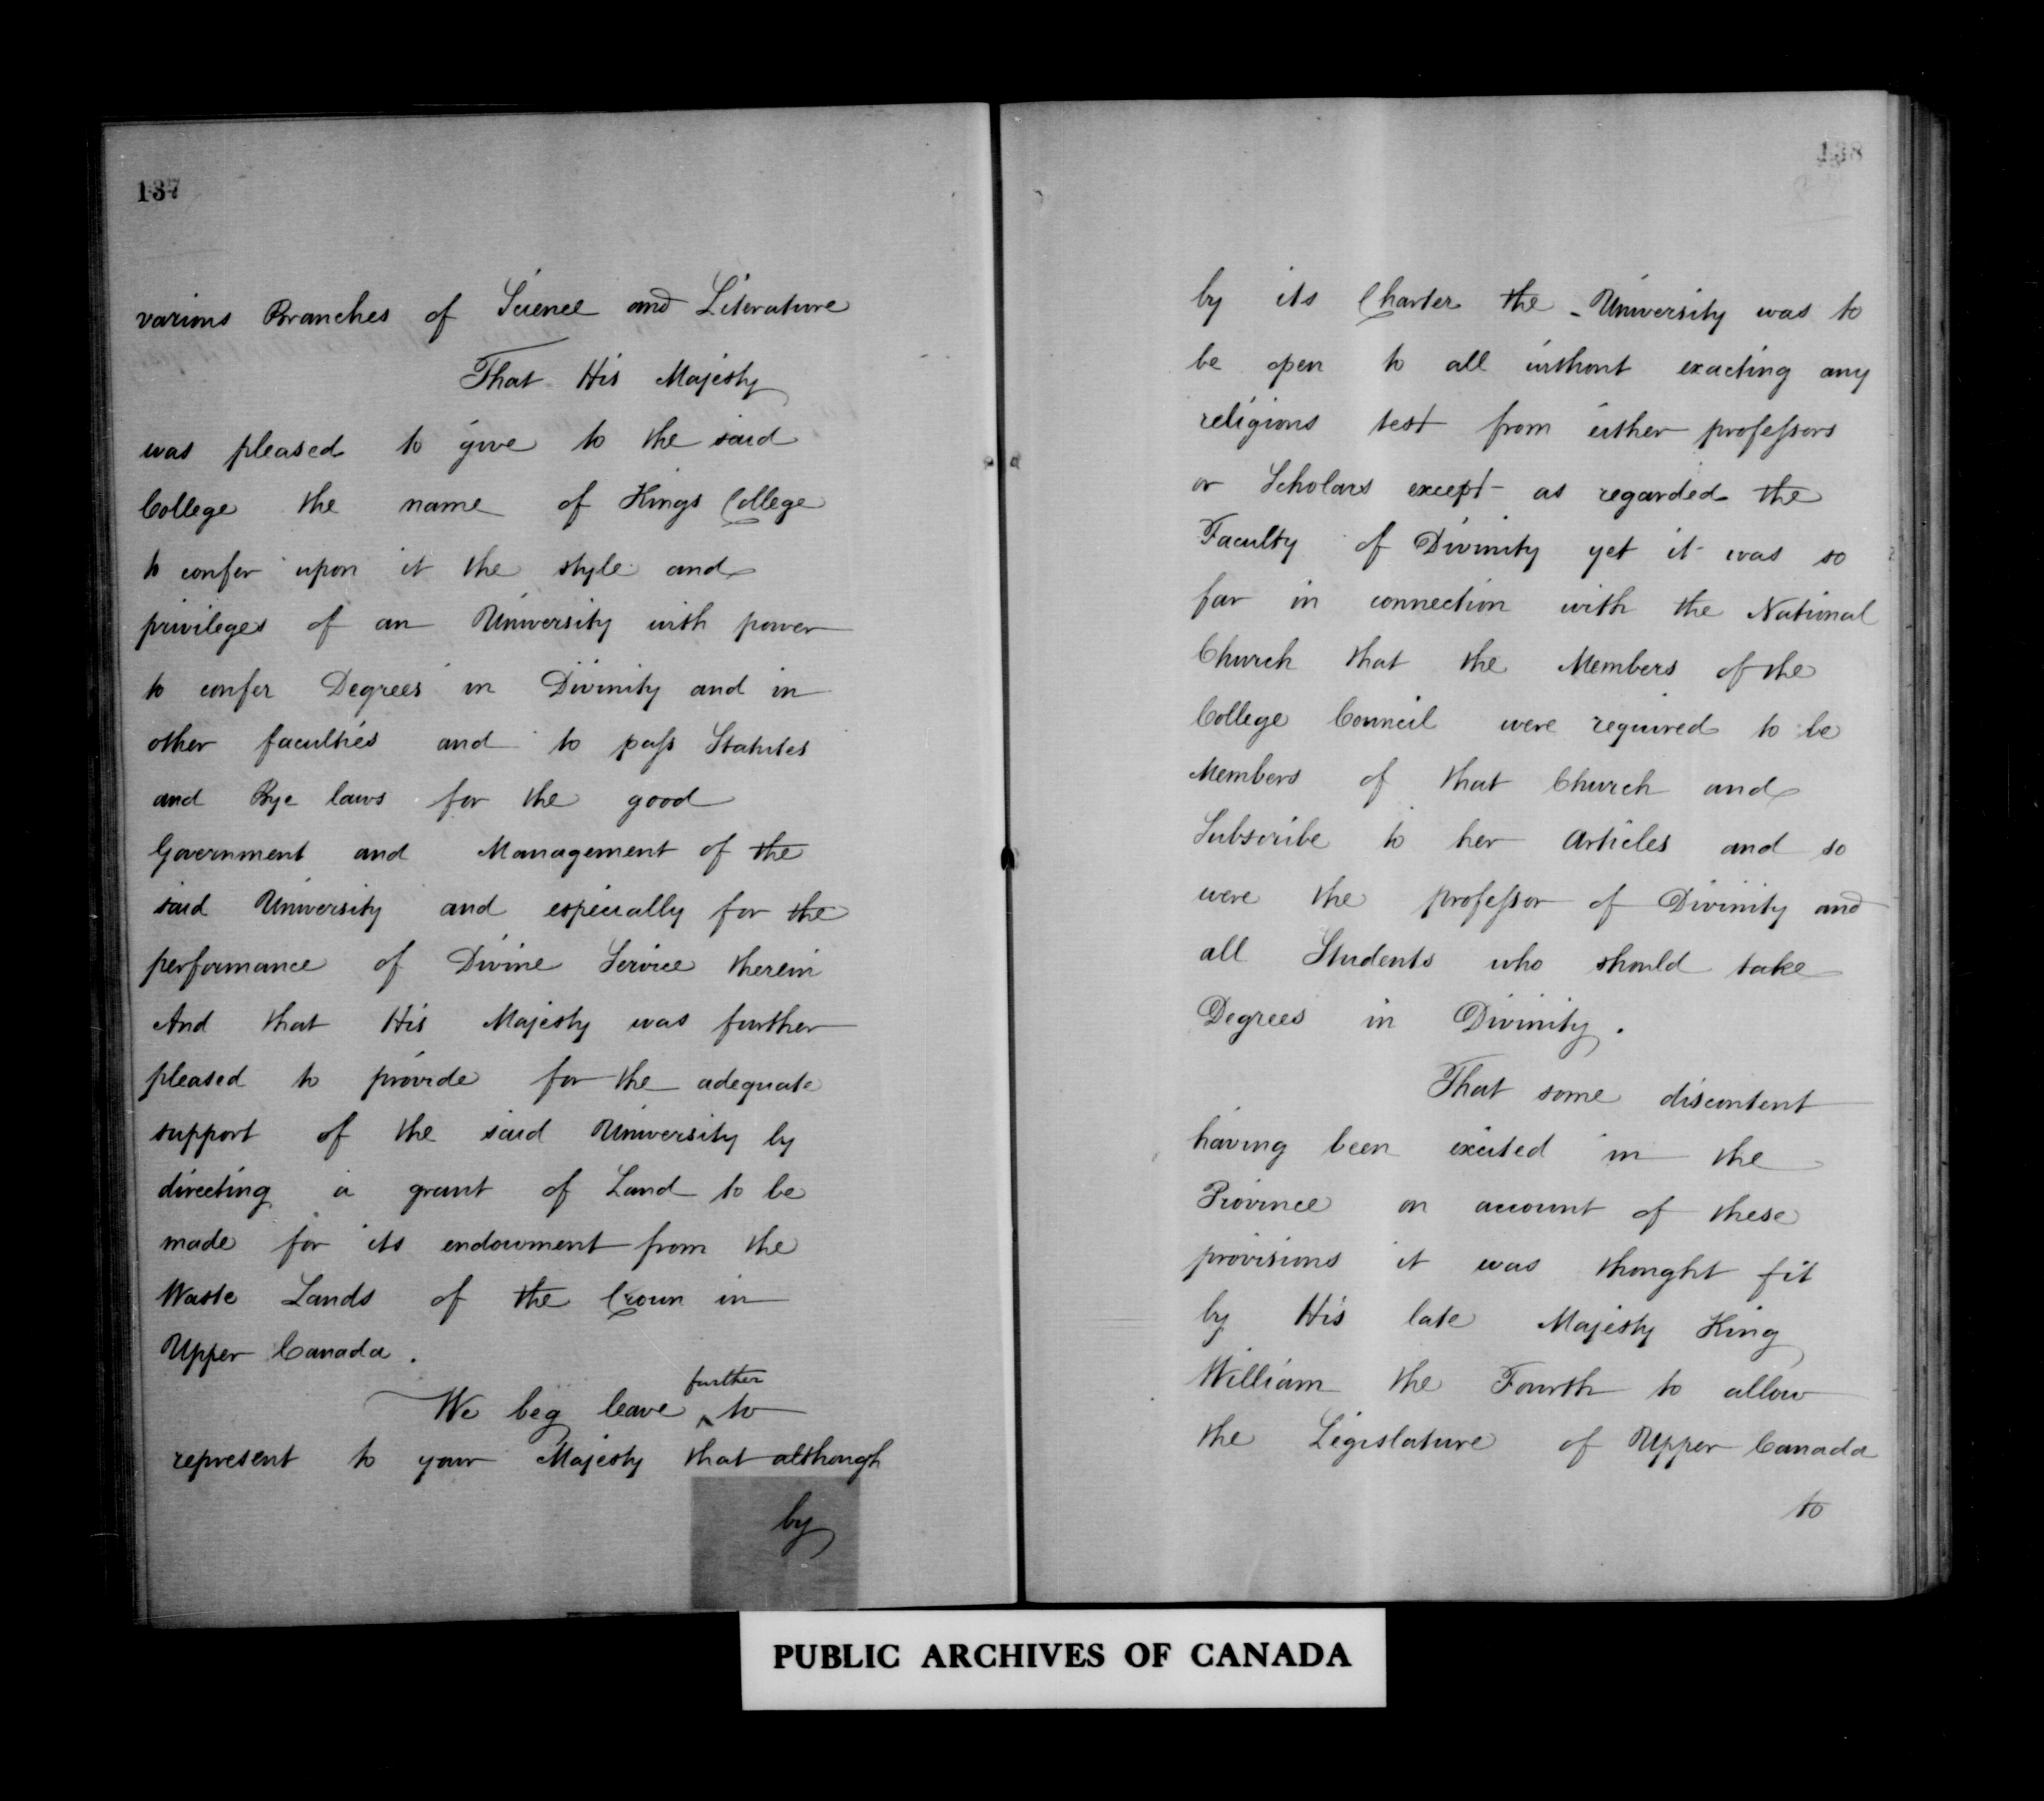 137
various Branches of Science and Literature
That His Majesty
was pleased to give to the said
College the name of Kings College
to confer upon it the style and
privileges of an University with power
to confer Degrees in Divinity and in
other faculties and to pass Statutes
and Bye laws for the good
Government and Management of the
said University and especially for the
performance of Divine Service therein
And that His Majesty was further
pleased to provide for the adequate
support of the said University by
directing a grant of Land to be
made for its endowment from the
Waste Lands of the Crown in
Upper Canada.
further
We beg leave ^ to
represent to your Majesty that although
by
138
by its Charter the University was to
be open to all without exacting any
religious test from either professors
or Scholars except as regarded the
Faculty of Divinity yet it was so
far in connection with the National
Church that the Members of the
College Council were required to be
Members of that Church and
Subscribe to her Articles and so
were the professor of Divinity and
all Students who should take
Degrees in Divinity.
That some discontent
having been excited in the
Province on account of these
provisions it was thought fit
by His late Majesty King
William the Fourth to allow
the Legislature of Upper Canada
to
PUBLIC ARCHIVES OF CANADA